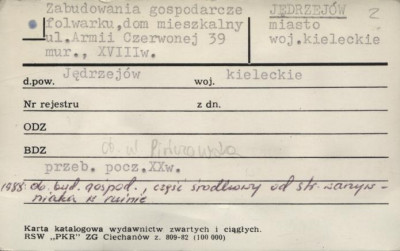 Zabudowania gospodarcze
folwarku,dom mieszkalny
ul.Armii Czerwonej 39
mur., XVIIIw.
JĘDRZEJÓW 2
miasto
woj.kieleckie
Jędrzejów kieleckie
d.pow. woj.
Nr rejestru z dn.
ODZ
BDZ ob. W
przeb. pocz.XXw.
1983 ob. bud. gospod., część środkowy od str. warzyw-
niaka w ruinie
Karta katalogowa wydawnictw zwartych i ciągłych.
RSW "PKR" ZG Ciechanów z. 809-82 (100 000)